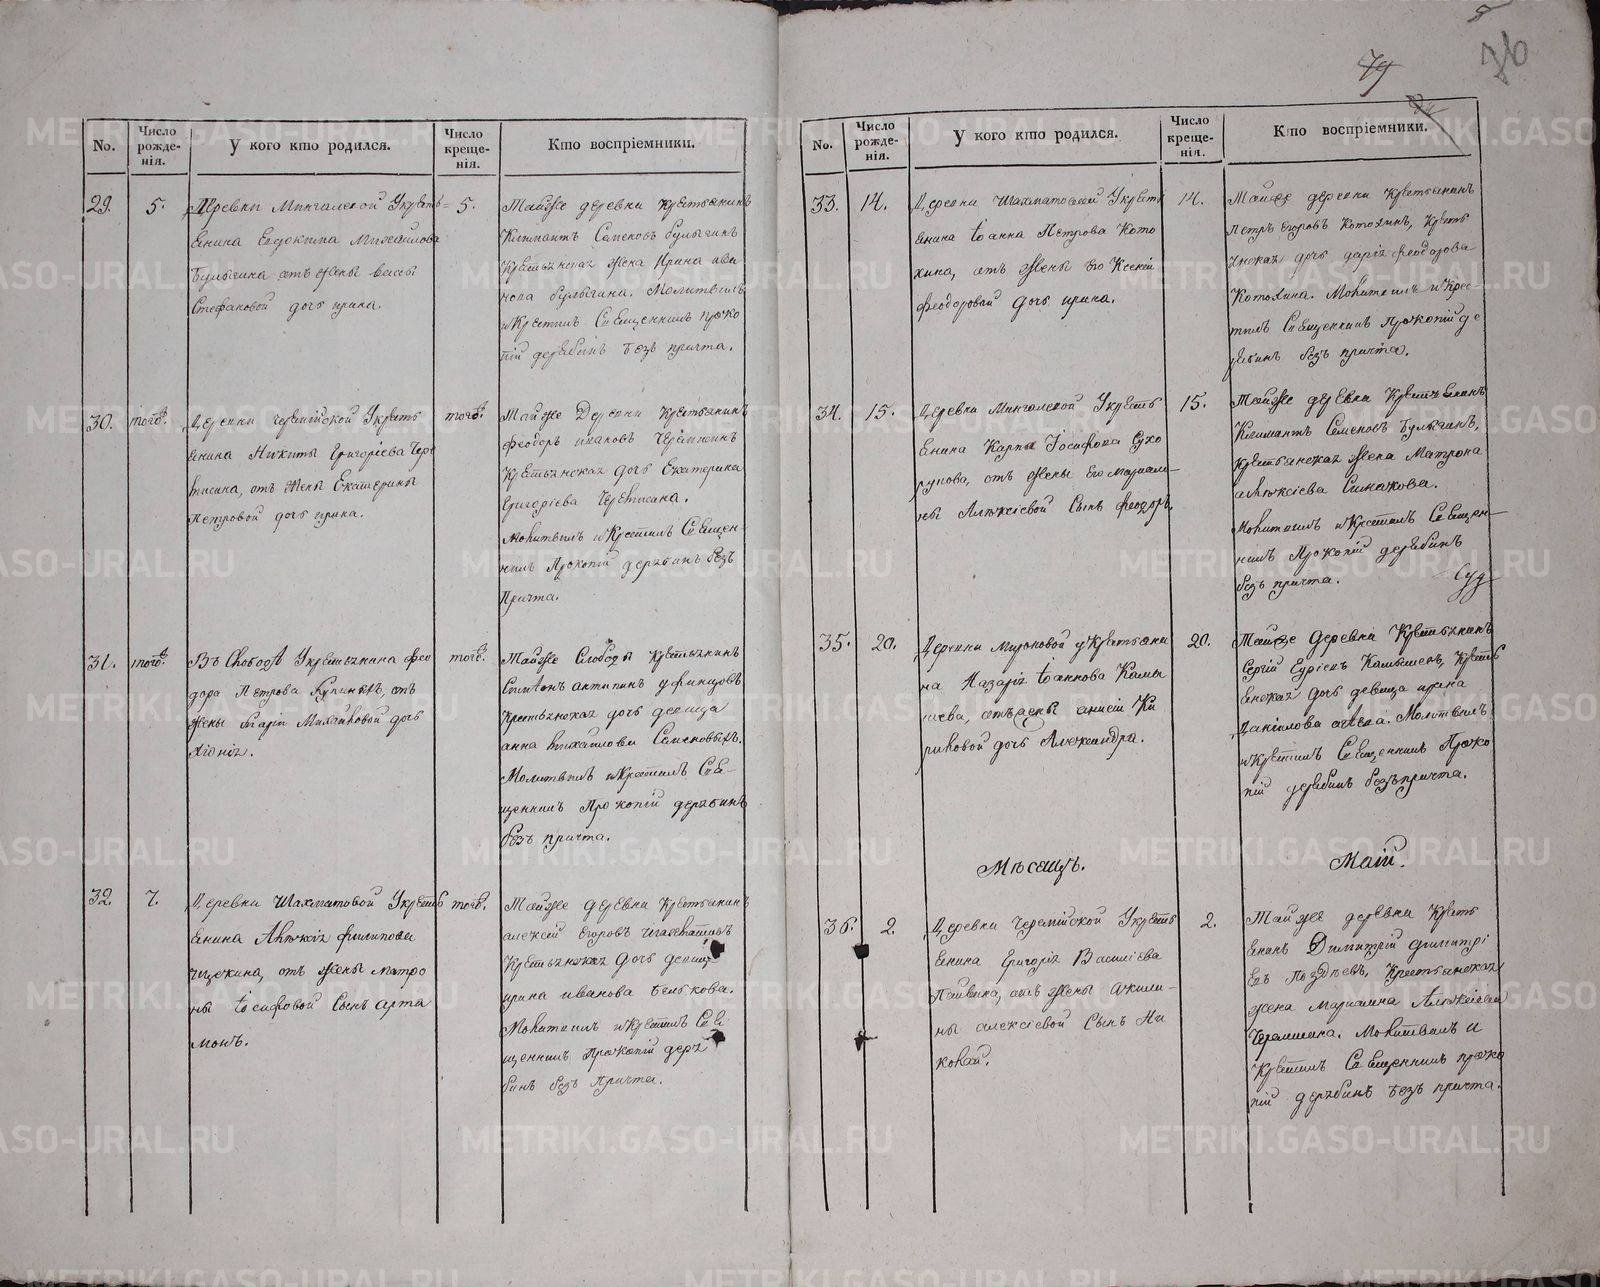 79
No.
Число рожде-нія.
У кого кто родился.
Число креще-нія.
Кто воспріемники.
29.
5.
Деревни Мингалевой У Кресть=
янина Евдокима Михайлова
Булыгина отъ жены
Стефановой дочь ирина.
5.
Тайже деревни крестьянинъ
Климантъ Семеновъ булыгинъ
Крестьянская жена Ирина
булыгина. Молитвилъ
и Крестилъ Священникъ проко
пій дерябинъ безъ причта.
30.
тогоже.
Деревни Черемiйской У Кресть
янина Никиты Григоріева Чере
мисина, отъ жены Екатерины
Петровой дочь ирина.
тогоже.
Тайже Деревни крестьянинъ
феодоръ ивановъ
Крестьянская дочь Екатерина
Григоріева Черемисина.
Молитвилъ и Крестилъ Священ-
никъ Прокопій дерябинъ безъ
Причта.
31.
тогоже.
Въ Слободѣ У крестьянина фео
дора Петрова отъ
жены Маріи Михайловой дочь
Хіонія.
тогоже.
Тайже Слободы крестьянинъ
антипинъ уфинцовъ
крестьянская дочь девица
анна михайлова Семеновыхъ.
Молитвилъ и Крестилъ Свя-
щенникъ Прокопій дерябинъ
безъ причта.
32.
7.
Деревни Шахматовой У Кресть
янина Алексія филипова
отъ жены матро
ны іосафовой Сынъ арта
монъ.
тогоже.
Тайже деревни Крестьянинъ
алексій Егоровъ
Крестьянская дочь девица
ирина иванова Белькова.
Молитвилъ и Крестилъ Свя
щенникъ Прокопій деря
бинъ безъ Причта.
No.
Число рожде-нія.
У кого кто родился.
Число креще-нія.
Кто воспріемники.
33.
14.
Деревни Шахматовой У Кресть
янина іоанна Петрова Кото
хина, отъ жены его Ксеніи
феодоровой дочь ирина.
14.
Тайже деревни крестьянинъ
петръ егоровъ Котохинъ, кресть
янская дочь дарія феодорова
Котохина. Молитвилъ и Крес-
тилъ Священникъ Прокопій де
рябинъ безъ причта.
34.
15.
Деревни Мингалевой У Кресть
янина Карпа Іосафова Сухо
рукова, отъ жены его Маріам-
ны Алексіевой Сынъ феодоръ.
15.
Тайже деревни Крестьянинъ
Климантъ Семеновъ Булыгинъ,
крестьянская жена Матрона
алексіева Симакова.
Молитвилъ и Крестилъ Священ-
никъ Прокопій дерябинъ
безъ причта.
35.
20.
Деревни Мироновой у Крестьяни
на Назарія іоаннова Камы
шева, отъ жены анисіи Ки
риловой дочь Александра.
20.
Тайже Деревни Крестьянинъ
Сергій Камышевъ, Кресть
янская дочь девица ирина
Даніилова Молитвилъ
и Крестилъ Священникъ Проко
пій дерябинъ безъ причта.
Мѣсецъ. Маій.
36.
2.
Деревни Черемiйской У Кресть
янина Григорія Василіева
Пайвина, отъ жены акили-
ны алексіевой Сынъ Ни
колай.
2.
Тайже деревни Кресть
янинъ Димитрій димитрі
евъ Поздѣевъ, Крестьянская
жена маріамна Алексіева
Молитвилъ и
Крестилъ Священникъ проко
пій дерябинъ безъ причта.
METRIKI.GASO-URAL.RU